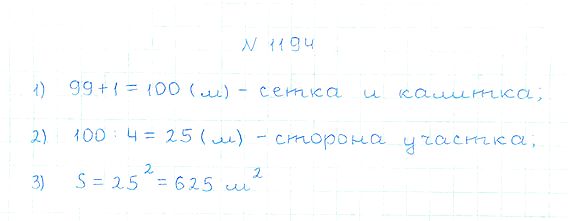 N 1194
1) 99+1=100 (м) - сетка и калитка;
2) 100 : 4 = 25 (м) - сторона участка;
3) S = 25² = 625 м²